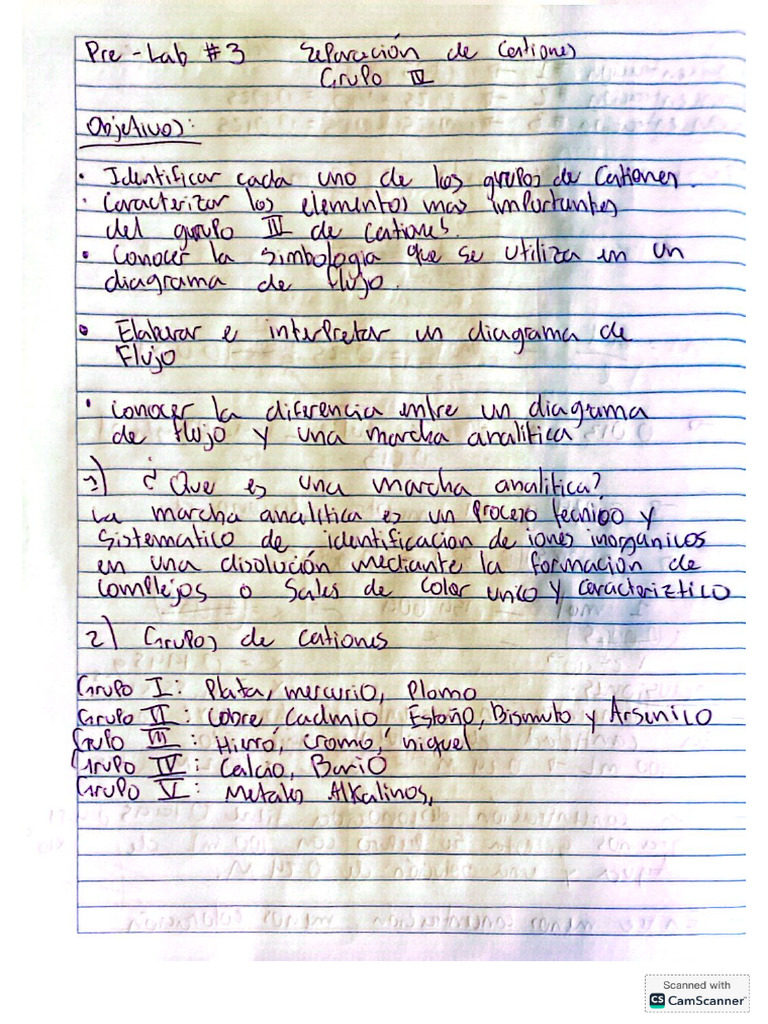 Pre-Lab #3 Separación de Cationes
Grupo IV
Objetivos:
• Identificar cada uno de los grupos de Cationes.
• Caracterizar los elementos mas importantes
del grupo III de cationes.
• Conocer la simbologia que se utiliza en un
diagrama de flujo.
• Elaborar e interpretar un diagrama de
Flujo
• conocer la diferencia entre un diagrama
de flujo y una marcha analitica
1) ¿Que es una marcha analitica?
La marcha analitica es un Proceso tecnico y
Sistematico de identificacion de iones inorganicos
en una disolución mediante la formación de
complejos o Sales de color unico y caracteriztico
2) Grupos de cationes
Grupo I: Plata, mercurio, Plomo
Grupo II: Cobre, Cadmio, Estaño, Bismuto y Arsenico
Grupo III: Hierro, cromo, niquel
Grupo IV: Calcio, Bario
Grupo V: Metales Alkalinos,
Scanned with
CS CamScanner